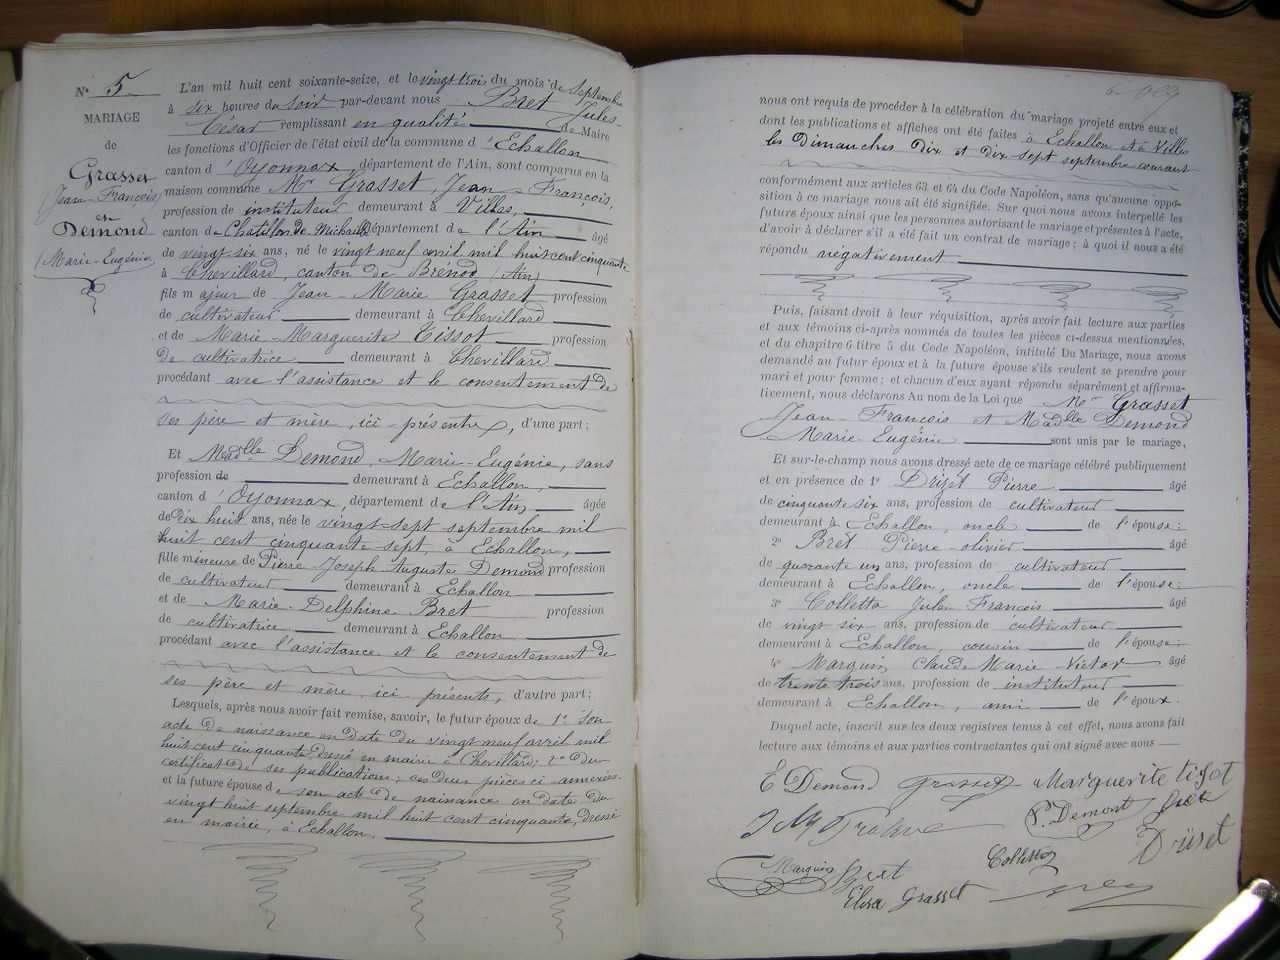 N° 5
MARIAGE
de
Grasset
(Jean-François)
et
Demond
(Marie-Eugénie)
L'an mil huit cent soixante-seize, et le vingt trois du mois de Septembre
à six heures du soir par-devant nous Bret Jules-
César remplissant en qualité de Maire
les fonctions d'Officier de l'état civil de la commune d'Echallon
canton d'Oyonnax, département de l'Ain, sont comparus en la
maison commune Mr Grasset, Jean-François,
profession de instituteur demeurant à Villes,
canton de Chatillon de Michaille département de l'Ain âgé
de vingt six ans, né le vingt neuf avril mil huit cent cinquante
à Chevillard, canton de Brénod (Ain)
fils majeur de Jean-Marie Grasset profession
de cultivateur demeurant à Chevillard
et de Marie-Marguerite Tissot profession
de cultivatrice demeurant à Chevillard
procédant avec l'assistance et le consentement de
ses père et mère, ici présents, d'une part;
Et Madlle Demond, Marie-Eugénie, sans
profession de demeurant à Echallon,
canton d'Oyonnax, département de l'Ain âgée
de dix huit ans, née le vingt sept septembre mil
huit cent cinquante sept, à Echallon,
fille mineure de Pierre Joseph Auguste Demond profession
de cultivateur demeurant à Echallon
et de Marie-Delphine Bret profession
de cultivatrice demeurant à Echallon
procédant avec l'assistance et le consentement de
ses père et mère, ici présents, d'autre part;
Lesquels, après nous avoir fait remise, savoir, le futur époux de 1° son
acte de naissance en date du vingt neuf avril mil
huit cent cinquante, dressé en mairie à Chevillard; 2° du
certificat de ses publications; ces deux pièces ci-annexées
et la future épouse de son acte de naissance en date du
vingt huit septembre mil huit cent cinquante, dressé
en mairie, à Echallon,
nous ont requis de procéder à la célébration du mariage projeté entre eux et
dont les publications et affiches ont été faites à Echallon et à Villes
les Dimanches dix et dix sept septembre courant
conformément aux articles 63 et 64 du Code Napoléon, sans qu'aucune oppo-
sition à ce mariage nous ait été signifiée. Sur quoi nous avons interpellé les
futurs époux ainsi que les personnes autorisant le mariage et présentes à l'acte,
d'avoir à déclarer s'il a été fait un contrat de mariage; à quoi il nous a été
répondu négativement
Puis, faisant droit à leur réquisition, après avoir fait lecture aux parties
et aux témoins ci-après nommés de toutes les pièces ci-dessus mentionnées,
et du chapitre 6 titre 5 du Code Napoléon, intitulé Du Mariage, nous avons
demandé au futur époux et à la future épouse s'ils veulent se prendre pour
mari et pour femme; et chacun d'eux ayant répondu séparément et affirma-
tivement, nous déclarons Au nom de la Loi que Mr Grasset
Jean-François et Madlle Demond
Marie-Eugénie sont unis par le mariage,
Et sur-le-champ nous avons dressé acte de ce mariage célébré publiquement
et en présence de 1° Drizet Pierre âgé
de cinquante six ans, profession de cultivateur
demeurant à Echallon, oncle de l'épouse;
2° Bret Pierre-olivier âgé
de quarante un ans, profession de cultivateur
demeurant à Echallon, oncle de l'épouse;
3° Colletta Jules François âgé
de vingt six ans, profession de cultivateur
demeurant à Echallon, cousin de l'épouse;
4° Marquis Claude Marie Victor âgé
de trente trois ans, profession de instituteur
demeurant à Echallon, ami de l'époux.
Duquel acte, inscrit sur les deux registres tenus à cet effet, nous avons fait
lecture aux témoins et aux parties contractantes qui ont signé avec nous
E Demond Grasset Marguerite tissot
P. Demont
Colletta Driset
Marquis Bret
Elisa Grasset